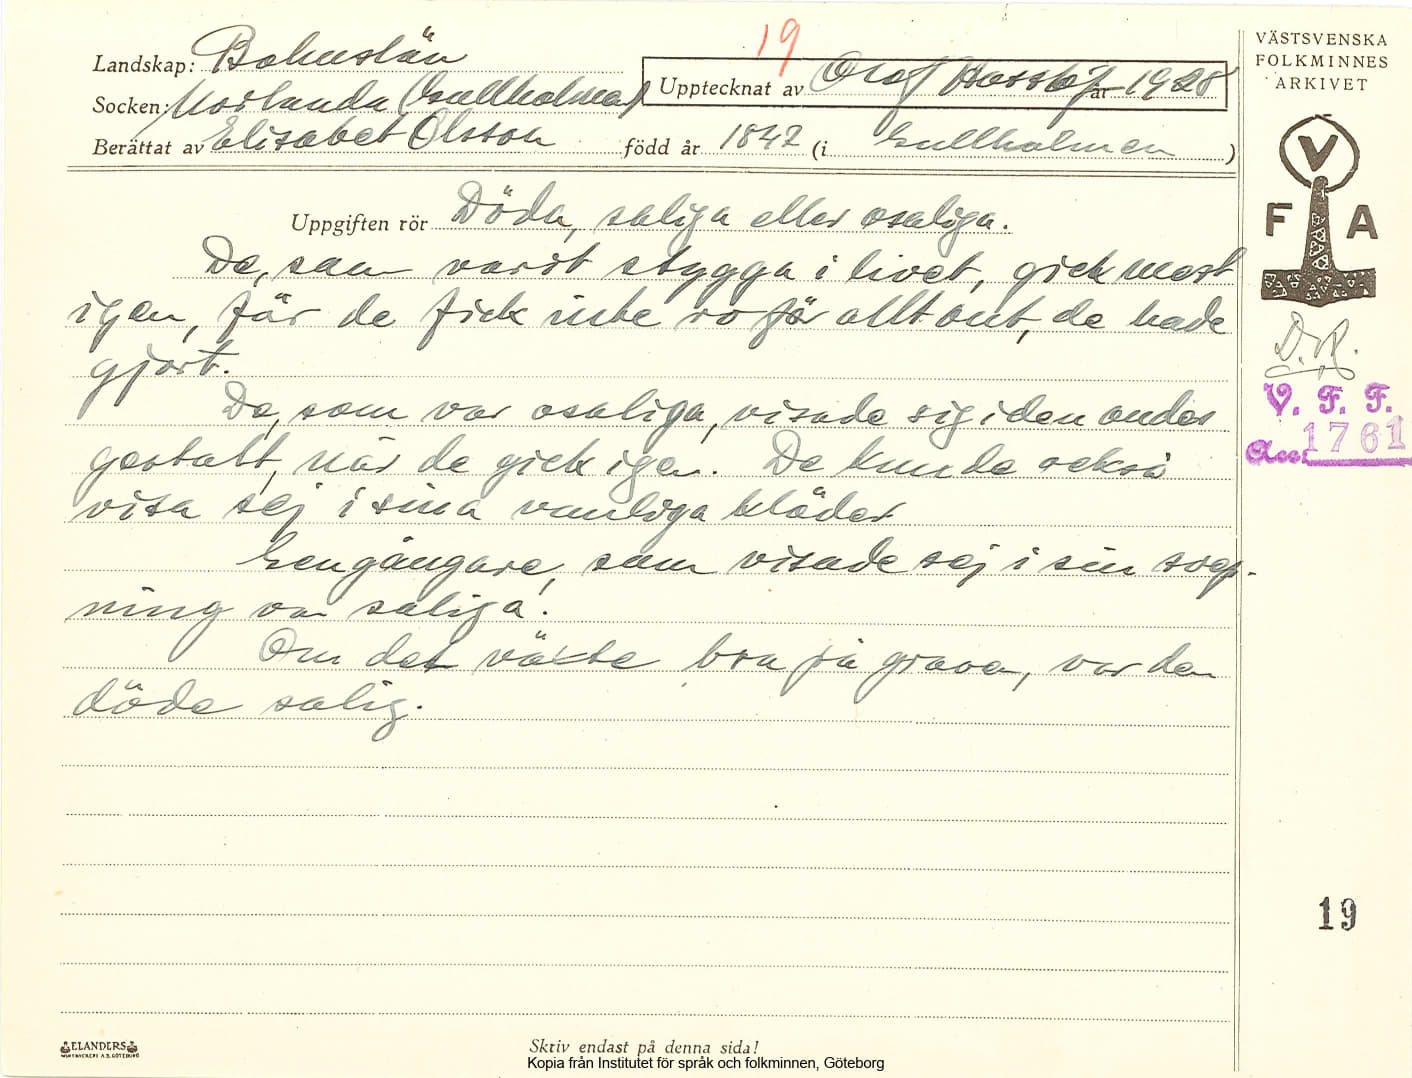 19
VÄSTSVENSKA
FOLKMINNES
ARKIVET
Landskap: Bohuslän
Upptecknat av Olof Hasslöf år 1928
Socken: Morlanda (Gullholmen)
Berättat av Elisabet Olsson född år 1842 (i Gullholmen)
V
F A
Uppgiften rör Döda, saliga eller osaliga.
De, som varit stygga i livet, gick mest
igen, för de fick inte ro för allt ont, de hade
gjort.
De, som var osaliga, visade sig i den ondes
gestalt, när de gick igen. De kunde också
visa sej i sina vanliga kläder
Gengångare, som visade sej i sin svep-
ning var saliga.
Om det växte bra på graven, var den
döde salig.
D.R.
V. F. F.
Acc: 1761
19
ELANDERS
BOKTRYCKERI A.B. GÖTEBORG
Skriv endast på denna sida!
Kopia från Institutet för språk och folkminnen, Göteborg